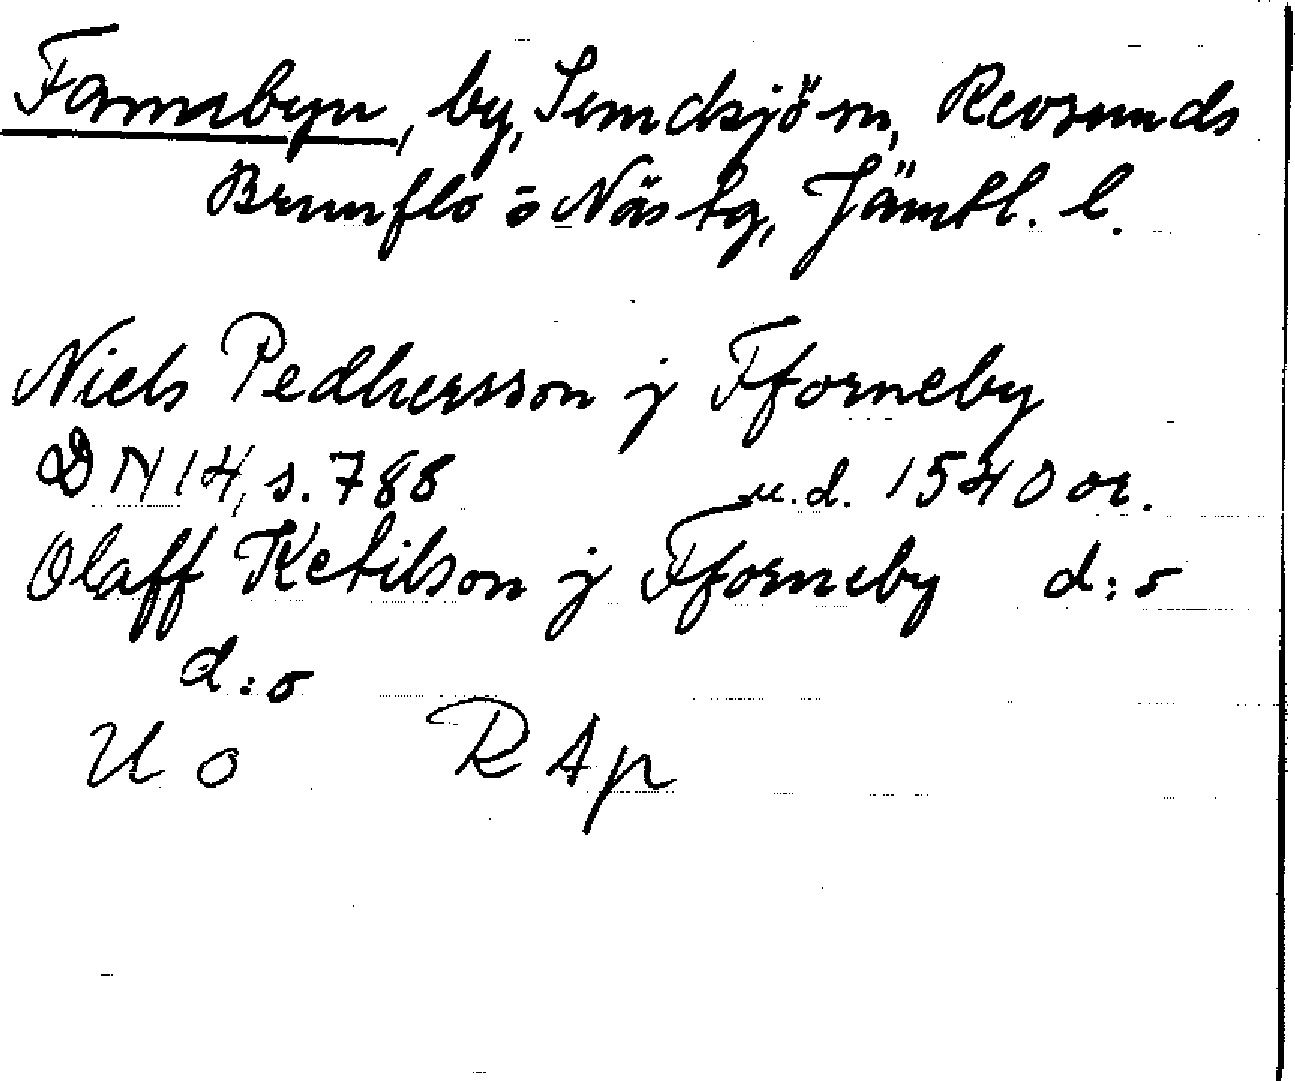 Fornabyn, by, Sundsjö sn, Revsunds
Brunflo o Näs tg, Jämtl. l.
Niels Pedhersson j Fforneby
DN 14, s. 788 u.d. 1540 or.
Olaff Ketilson j Fforneby d:o
d:o
U O RAp